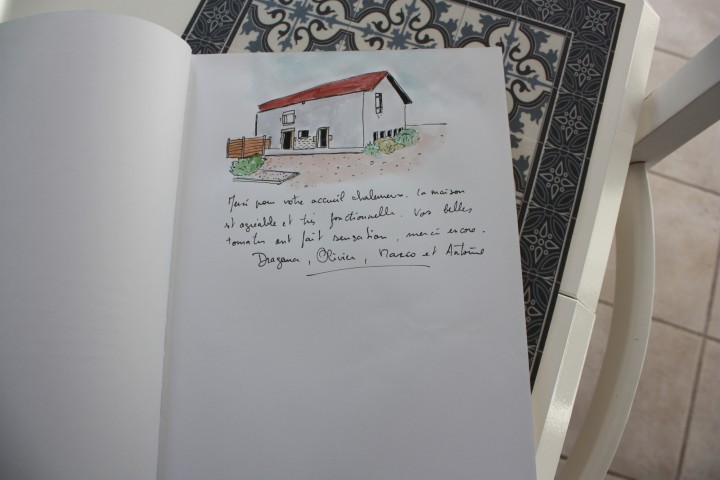 Merci pour votre accueil chaleureux. La maison
est agréable et très fonctionnelle. Vos belles
tomates ont fait sensation, merci encore.
Dragana, Olivier, Marco et Antoine